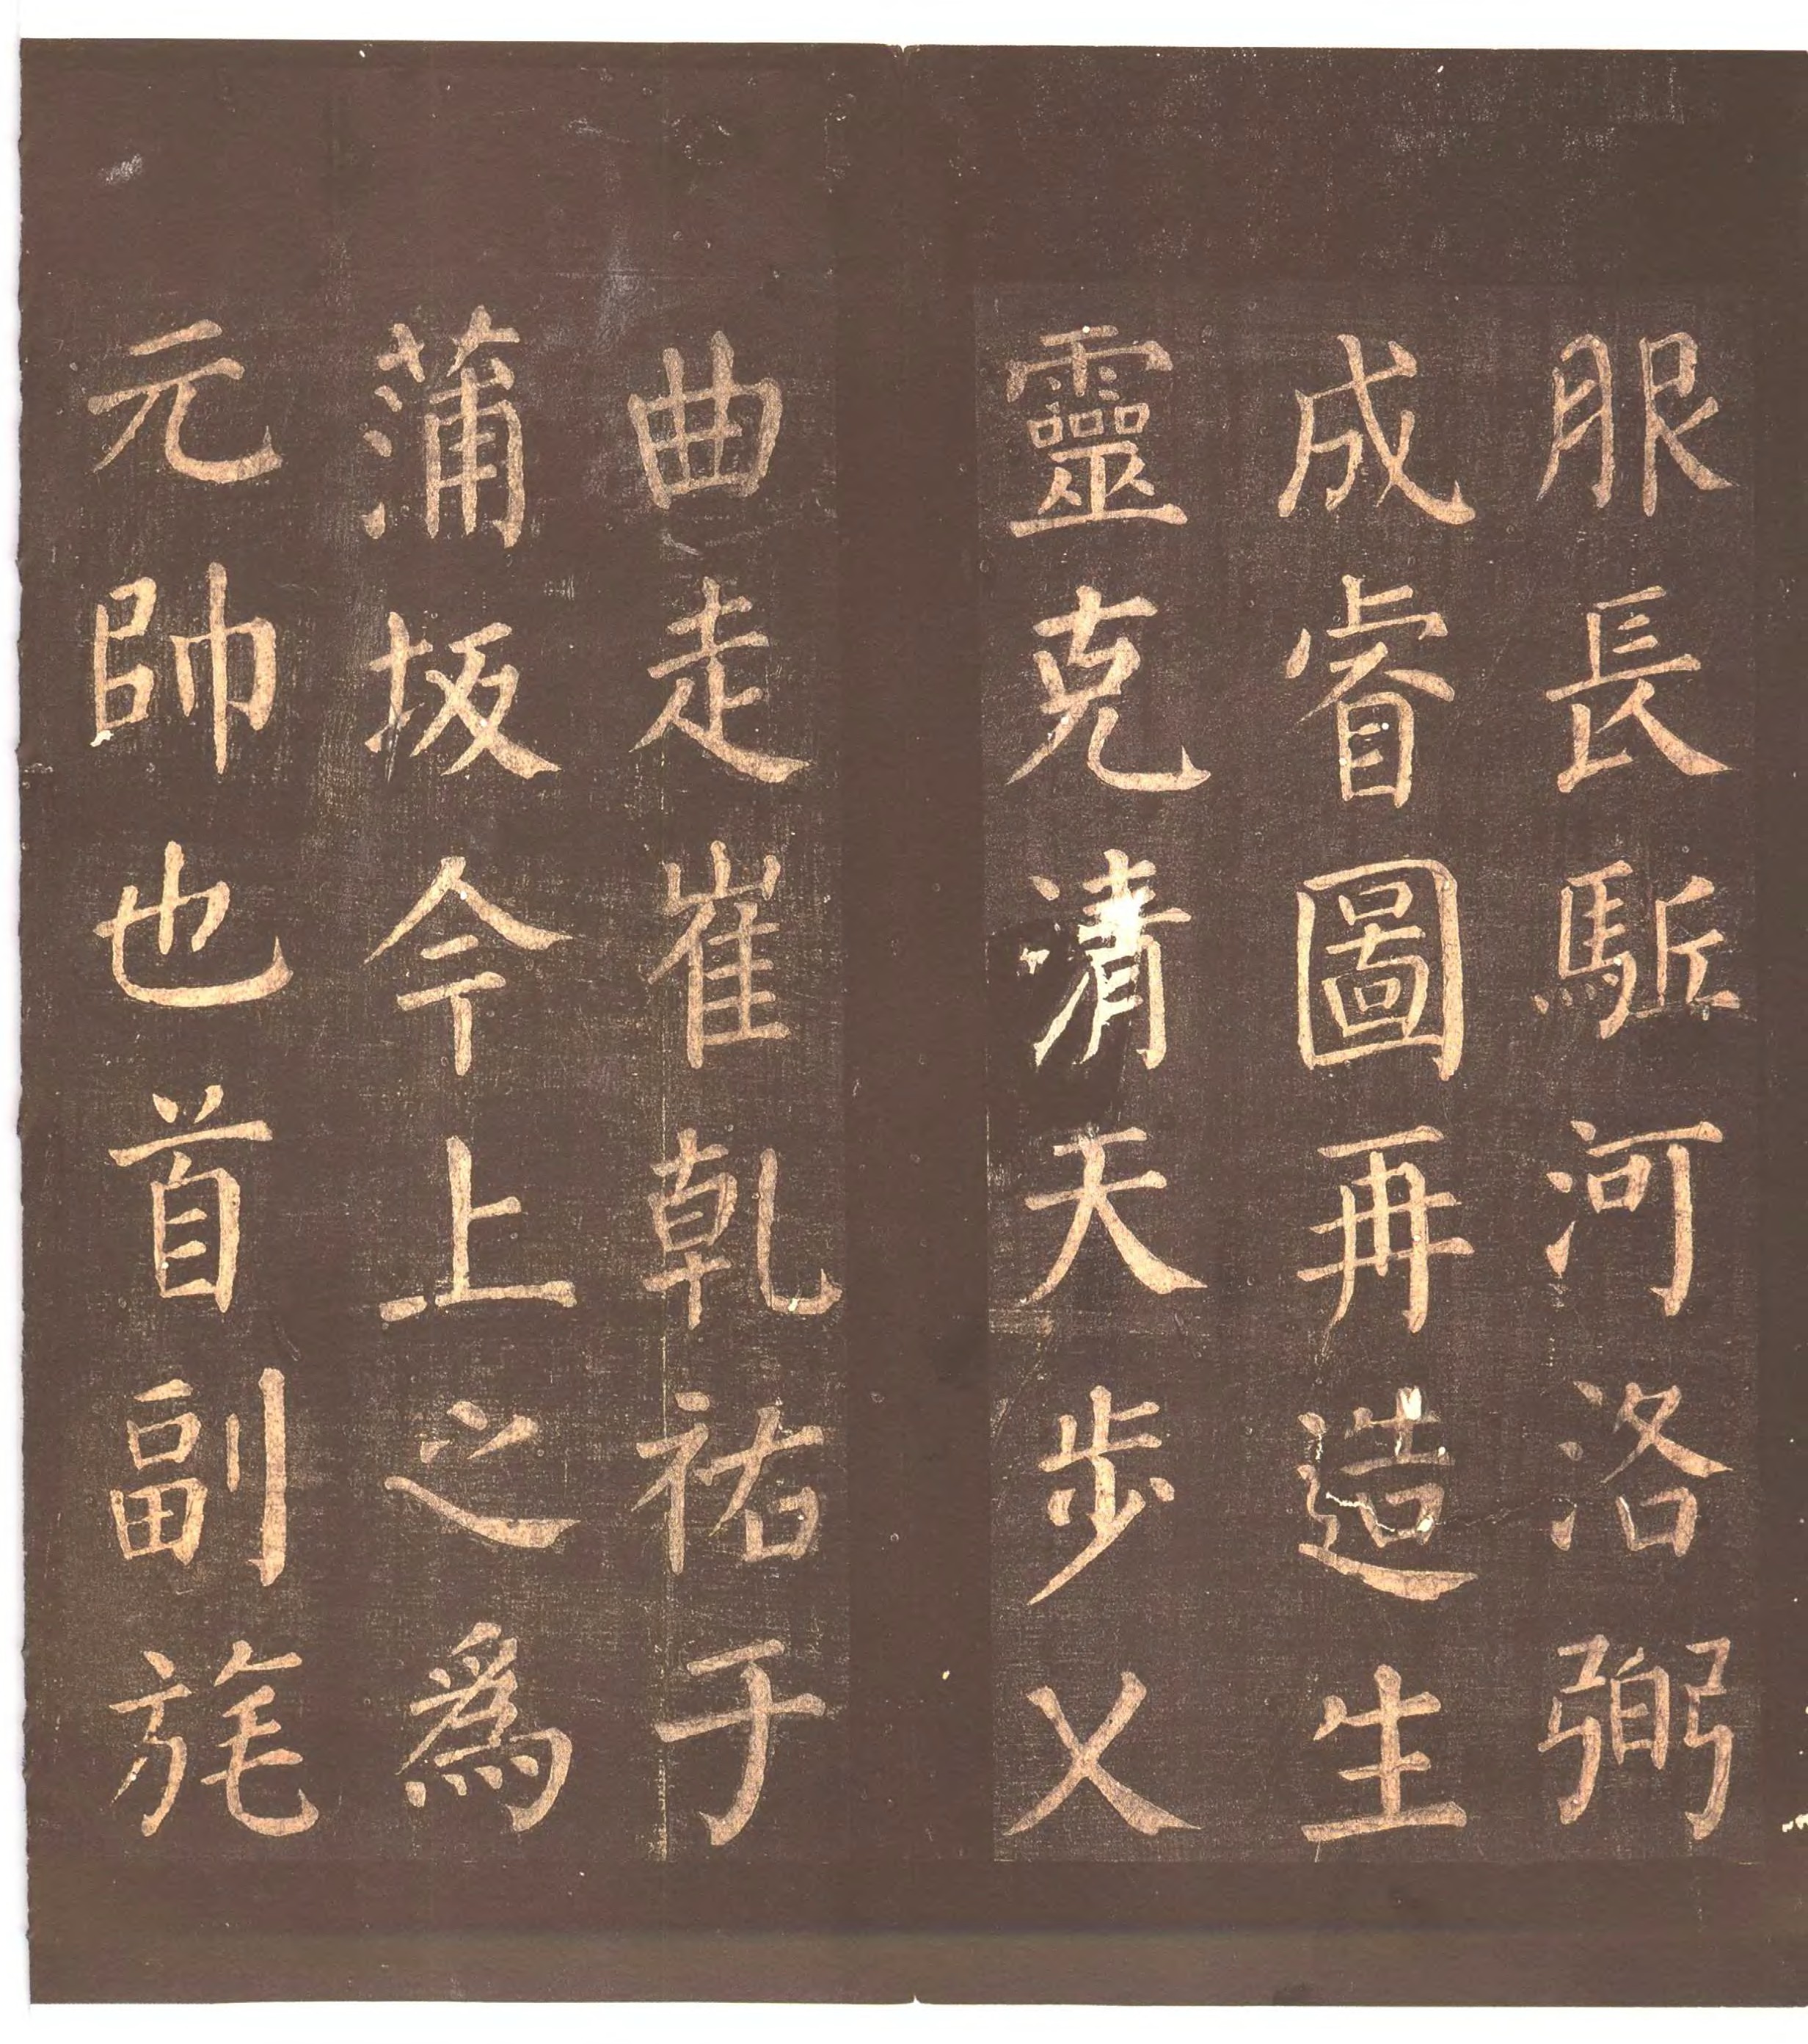 服長駈河洛弼
成睿圖再造生
靈克清天步乂
曲走崔乾祐于
蒲坂今上之爲
元帥也首副旄